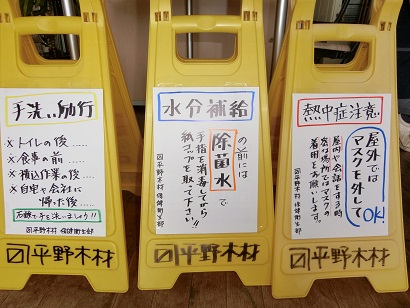 手洗い励行
×トイレの後.....
×食事の前.....
×積込作業の後...
×自宅や会社に
帰った後......
石鹸で手を洗いましょう!!
平野木材 保健衛生部
平野木材
水分補給
の前には
除菌水で
手指を消毒してから
紙コップを取って下さい!!
平野木材 保健衛生部
平野木材
熱中症注意
屋外では
マスクを外して
OK!
屋内や会話をする時
密な場所ではマスクの
着用をお願いします。
平野木材 保健衛生部
平野木材